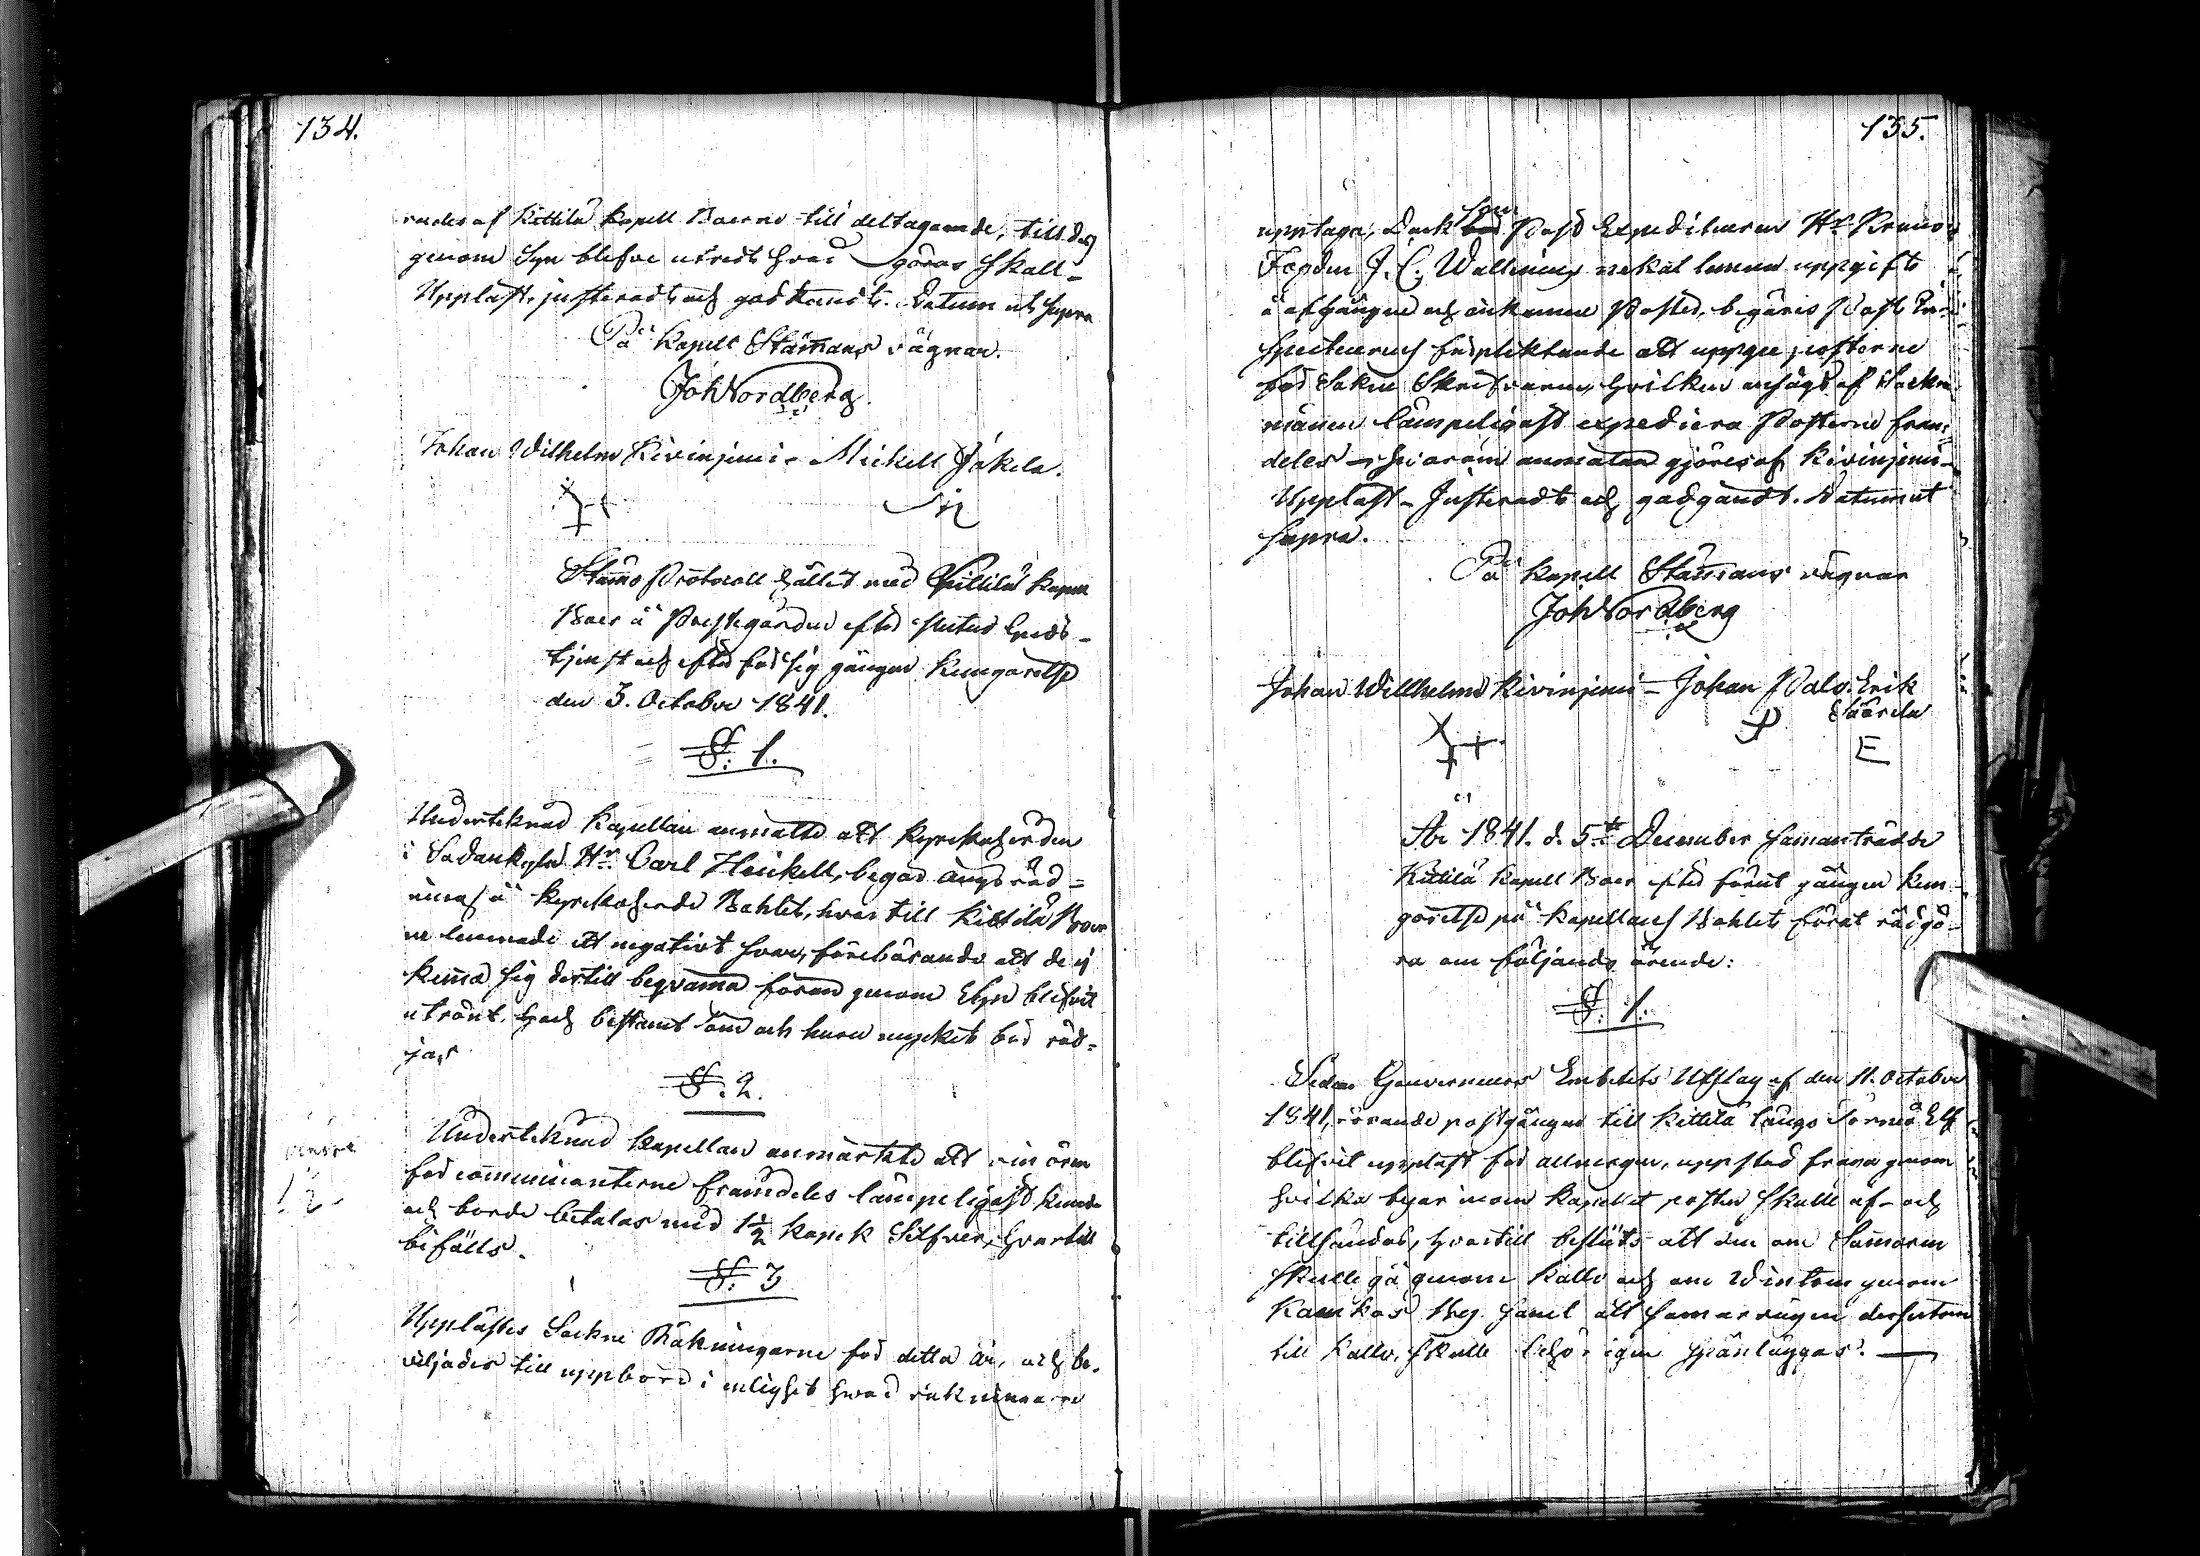 134.
rades af Kittilä Kapell Boerne till deltagande, till des
genom Syn blifve utredt hvad göras skall –
Uppläst, justeradt och godkändt. Datum ut supra
På Kapell Stämans vägnar.
Joh Nordberg
Johan Wilhelm Kivinjemi – Mickell Jakela.
Stämo Protocoll hållet med Kittilä Kapell
Boer å Prestegården efter slutad Guds-
tjenst och efter för sig gången kungörelse
den 3. October 1841.
§. 1.
Underteknad Kapellan anmälte att Kyrkoherden
i Sodankylä Hr. Carl Heickell, begär ängs röd=
ning å Kyrkoherde Bohlet, hvar till Kittilä Boer
ne lemnade ett negativt svar, förebärande att de ej
kuna sig dertill beqväma förän genom Syn blifvit
utrönt, och bestämt om och huru mycket bör röd=
jas
§. 2.
Undertecknad Kapellan anmärkte att vin ören
för communicanterne framdeles lämpeligast kunde
och borde betalas med 1½ kopek Silfver, hvartill
bifölls.
§. 3
Upplästes Sockne Räkningarne för detta år, och be-
viljades till uppbörd i enlighet hvad räkningarne
135.
upptaga, Dock som Post Expediteuren Hr
J. C. Wallenius nekat lemna uppgift
å afgångne och ankomne Poster, begäres Post In-
specteurens förpliktande att uppge posterne
för Sokne Skrifvaren, hvilken ansågs af Sockne
männen lämpeligast expediera Posterne fram=
deles – hvarom anmälan gjöres af Kivinjemi –
Uppläst – Justeradt och godkändt. Datum ut
supra.
På Kapell Stämans vägnar
Joh Nordberg
Johan Willhelm Kivinjemi – Johan Palo. Erik
Säärela
E
År 1841. d. 5te December samanträdde
Kittilä Kapell Boer efter förut gången kun-
görelse på Kapellans Bohlet förat rådgö-
ra om följande ärende:
§. 1.
Sedan Gouverneurs Embetets Utslag af den 11. October
1841, rörande postgången till Kittilä längs Torneå Elf
blifvit uppläst för allmogen, uppstod fråga genom
hvilka byar inom Kapellet posten skulle af- och
tillsändas, hvartill beslöts att den om Somaren
skulle gå genom Kallo och om Wintern genom
Kaukos Weg samt att somarvägen dessutom
till Kallo, skulle behörigen spånläggas. —